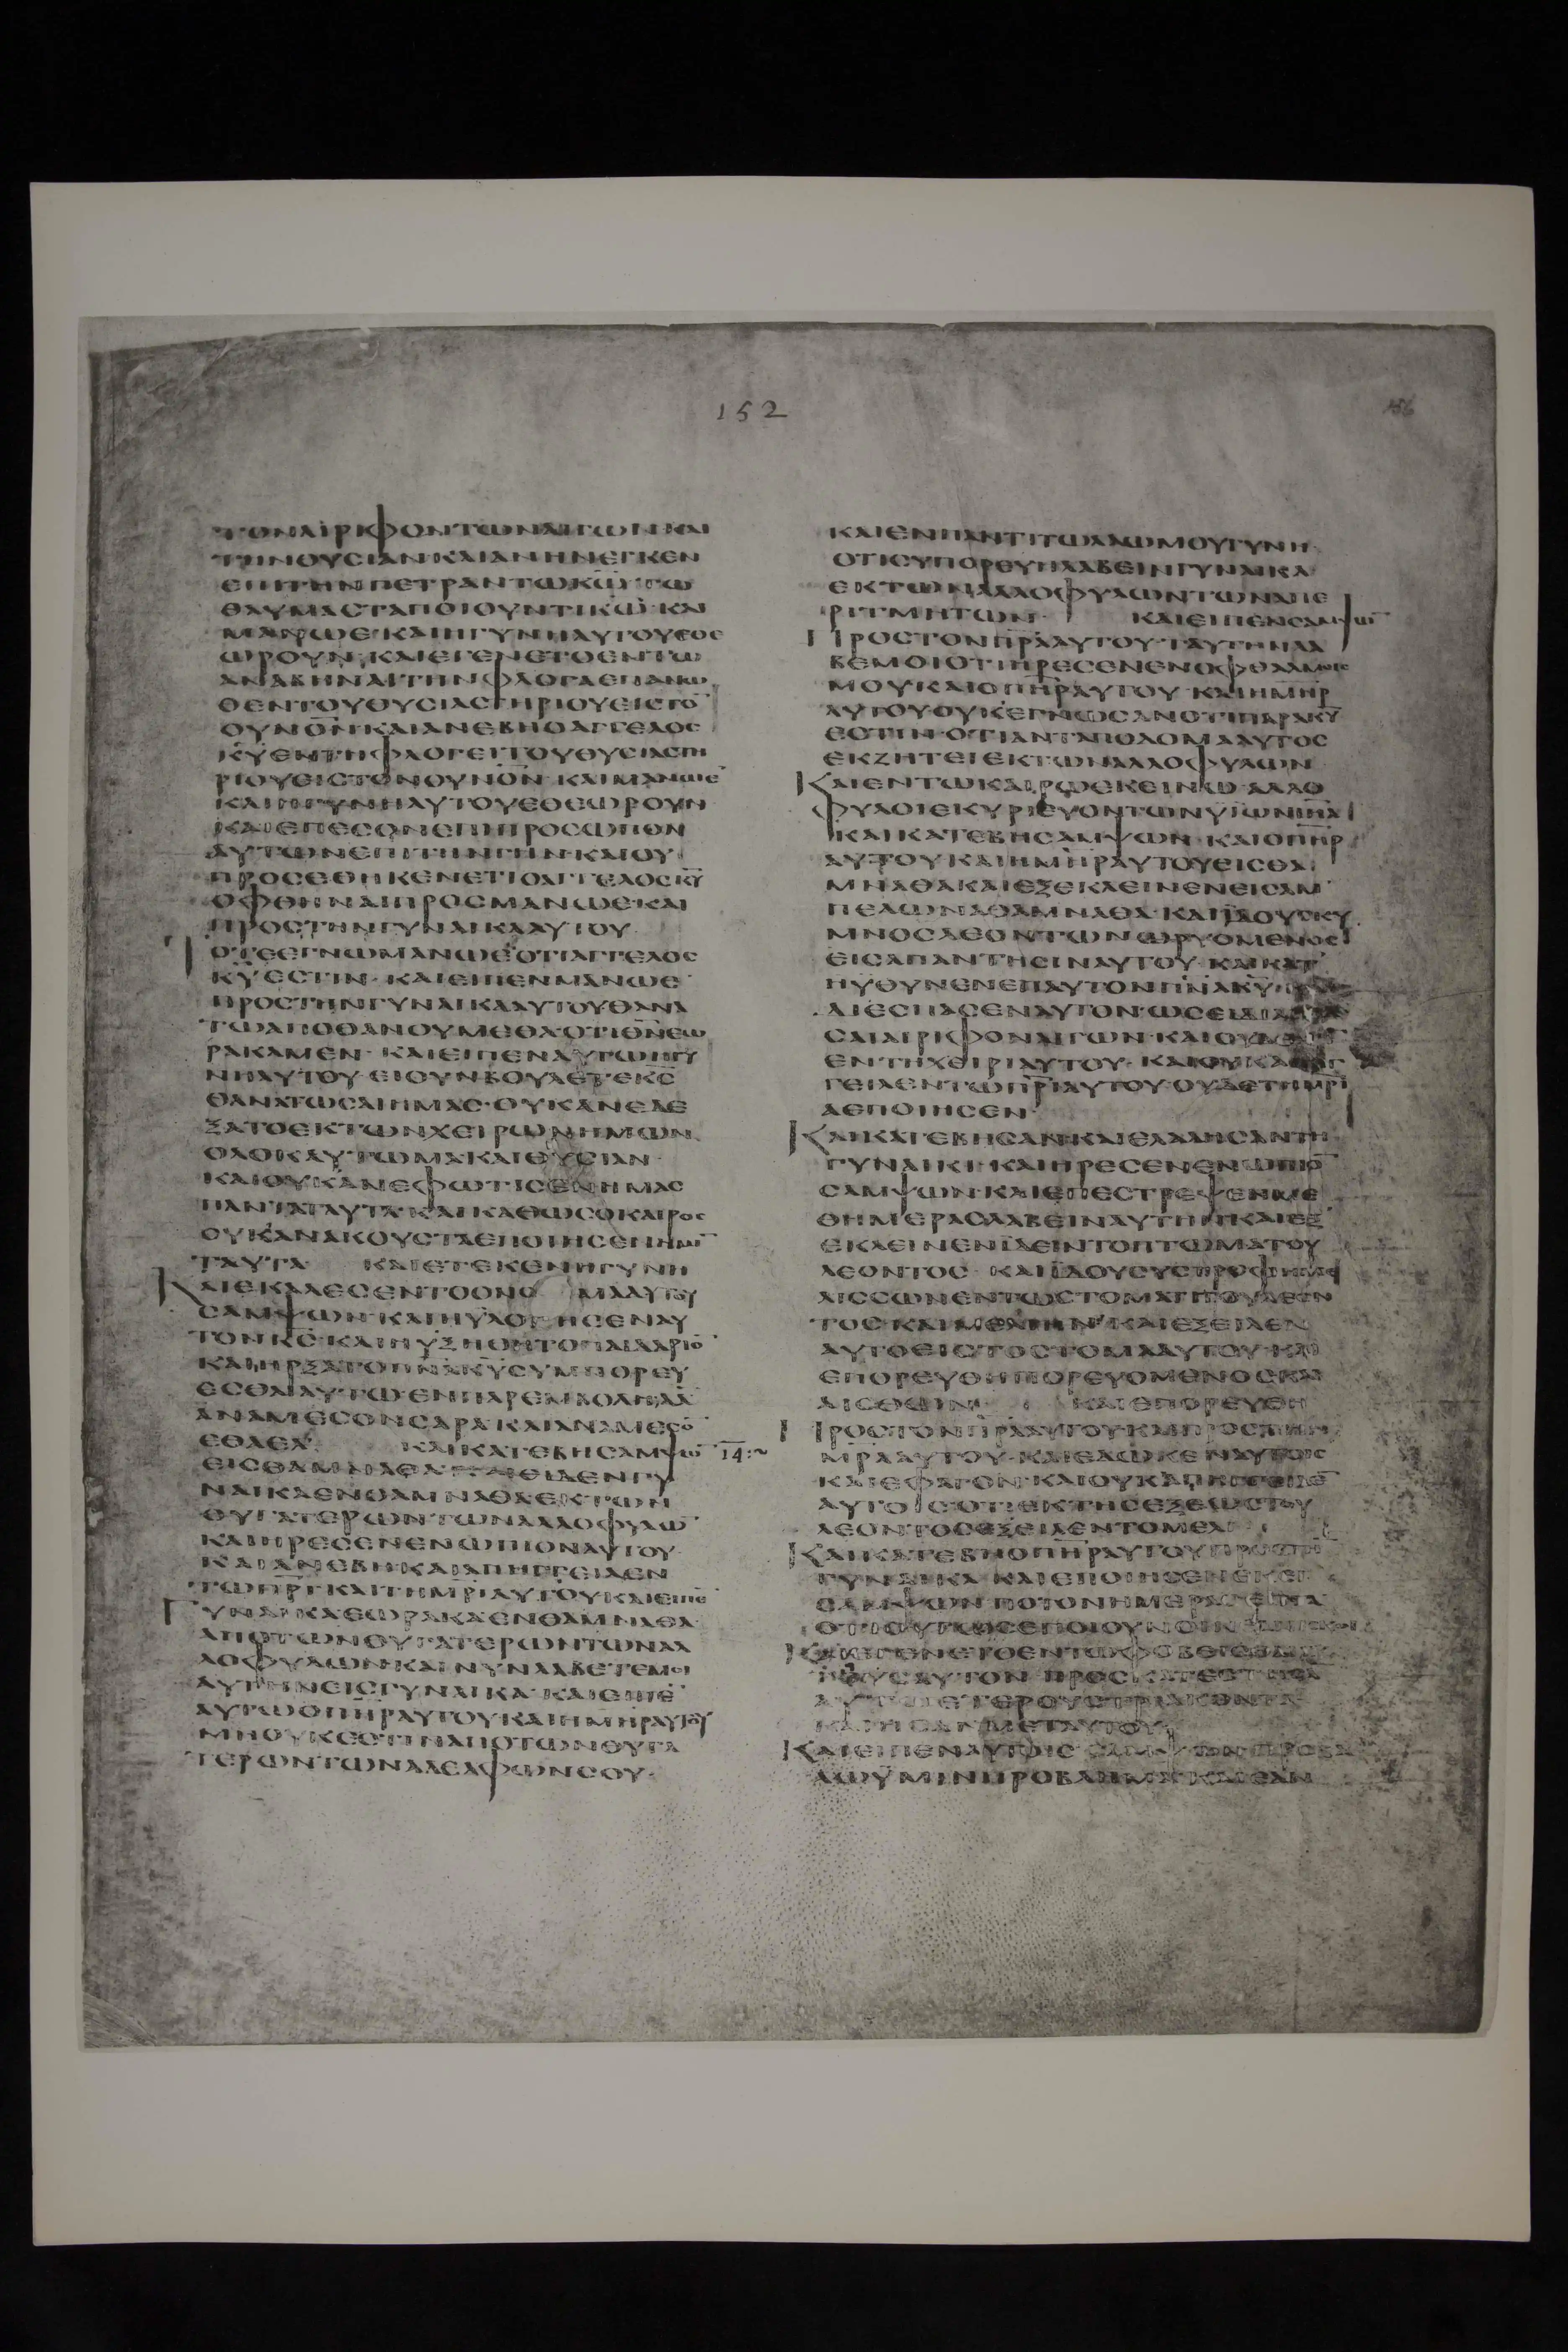 152
156
ΤΟΝΑΙΡΙΦΟΝΤΩΝΑΙΓΩΝΚΑΙ
ΤΗΝΘΥΣΙΑΝ·ΚΑΙΑΝΗΝΕΓΚΕΝ
ΕΠΙΤΗΝΠΕΤΡΑΝΤΩΚΩ·ΤΩ
ΘΑΥΜΑΣΤΑΠΟΙΟΥΝΤΙΚΩ·ΚΑΙ
ΜΑΝΩΕ·ΚΑΙΗΓΥΝΗΑΥΤΟΥΕΘΕ
ΩΡΟΥΝ·ΚΑΙΕΓΕΝΕΤΟΕΝΤΩ
ΑΝΑΒΗΝΑΙΤΗΝΦΛΟΓΑΕΠΑΝΩ
ΘΕΝΤΟΥΘΥΣΙΑΣΤΗΡΙΟΥΕΙΣΤΟ̄
ΟΥΝΟΝ·ΚΑΙΑΝΕΒΗΟΑΓΓΕΛΟΣ
ΚΥΕΝΤΗΦΛΟΓΕΙΤΟΥΘΥΣΙΑΣΤΗ
ΡΙΟΥΕΙΣΤΟΝΟΥΝΟΝ·ΚΑΙΜΑΝΩΕ
ΚΑΙΗΓΥΝΗΑΥΤΟΥΕΘΕΩΡΟΥΝ
ΚΑΙΕΠΕΣΟΝΕΠΙΠΡΟΣΩΠΟΝ
ΑΥΤΩΝΕΠΙΤΗΝΓΗΝ·ΚΑΙΟΥ
ΠΡΟΣΕΘΗΚΕΝΕΤΙΟΑΓΓΕΛΟΣΚΥ
ΟΦΘΗΝΑΙΠΡΟΣΜΑΝΩΕ·ΚΑΙ
ΠΡΟΣΤΗΝΓΥΝΑΙΚΑΑΥΤΟΥ
ΤΟΤΕΕΓΝΩΜΑΝΩΕΟΤΙΑΓΓΕΛΟΣ
ΚΥΕΣΤΙΝ·ΚΑΙΕΙΠΕΝΜΑΝΩΕ
ΠΡΟΣΤΗΝΓΥΝΑΙΚΑΑΥΤΟΥΘΑΝΑ
ΤΩΑΠΟΘΑΝΟΥΜΕΘΑΟΤΙΘΝΕΩ
ΡΑΚΑΜΕΝ·ΚΑΙΕΙΠΕΝΑΥΤΩΗΓΥ
ΝΗΑΥΤΟΥ·ΕΙΟΥΝΒΟΥΛΕΤΕΚΣ
ΘΑΝΑΤΩΣΑΙΗΜΑΣ·ΟΥΚΑΝΕΔΕ
ΞΑΤΟΕΚΤΩΝΧΕΙΡΩΝΗΜΩΝ
ΟΛΟΚΑΥΤΩΜΑΚΑΙΘΥΣΙΑΝ
ΚΑΙΟΥΚΑΝΕΦΩΤΙΣΕΝΗΜΑΣ
ΠΑΝΤΑΤΑΥΤΑ·ΚΑΙΚΑΘΩΣΟΚΑΙΡΟΣ
ΟΥΚΑΝΑΚΟΥΣΤΑΕΠΟΙΗΣΕΝΗΜῙ
ΤΑΥΤΑ ΚΑΙΕΤΕΚΕΝΗΓΥΝΗ
ΚΑΙΕΚΑΛΕΣΕΝΤΟΟΝΟ ΜΑΑΥΤΟΥ
ΣΑΜΨΩΝ·ΚΑΙΗΥΛΟΓΗΣΕΝΑΥ
ΤΟΝΚΣ·ΚΑΙΗΥΞΗΘΗΤΟΠΑΙΔΑΡΙΟ̄
ΚΑΙΗΡΞΑΤΟΠΝΑΚΥΣΥΜΠΟΡΕΥ
ΕΣΘΑΙΑΥΤΩ·ΕΝΠΑΡΕΜΒΟΛΗΔᾹ
ΑΝΑΜΕΣΟΝΣΑΡΑ·ΚΑΙΑΝΑΜΕΣΟ̄
ΕΘΑΕΛ· ΚΑΙΚΑΤΕΒΗΣΑΜΨΩ̄ 14:~
ΕΙΣΘΑΜΝΑΘΑ ΕΙΔΕΝΓΥ
ΝΑΙΚΑΕΝΘΑΜΝΑΘΑΕΚΤΩΝ
ΘΥΓΑΤΕΡΩΝΤΩΝΑΛΛΟΦΥΛΩ̄
ΚΑΙΗΡΕΣΕΝΕΝΩΠΙΟΝΑΥΤΟΥ
ΚΑΙΑΝΕΒΗ·ΚΑΙΑΠΗΓΓΕΙΛΕΝ
ΤΩΠΡΙ·ΚΑΙΤΗΜΡΙΑΥΤΟΥΚΑΙΕΙΠΕ̄
ΓΥΝΑΙΚΑΕΩΡΑΚΑΕΝΘΑΜΝΑΘΑ
ΑΠΟΤΩΝΘΥΓΑΤΕΡΩΝΤΩΝΑΛ
ΛΟΦΥΛΩΝ·ΚΑΙΝΥΝΛΑΒΕΤΕΜΟΙ
ΑΥΤΗΝΕΙΣΓΥΝΑΙΚΑ·ΚΑΙΕΙΠΕ̄
ΑΥΤΩΟΠΗΡΑΥΤΟΥΚΑΙΗΜΗΡΑΥΤΟΥ
ΜΗΟΥΚΕΣΤΙΝΑΠΟΤΩΝΘΥΓΑ
ΤΕΡΩΝΤΩΝΑΔΕΛΦΩΝΣΟΥ·
ΚΑΙΕΝΠΑΝΤΙΤΩΛΑΩΜΟΥΓΥΝΗ
ΟΤΙΣΥΠΟΡΕΥΗΛΑΒΕΙΝΓΥΝΑΙΚΑ
ΕΚΤΩΝΑΛΛΟΦΥΛΩΝΤΩΝΑΠΕ
ΡΙΤΜΗΤΩΝ· ΚΑΙΕΙΠΕΝΣΑΜΨΩ̄
ΠΡΟΣΤΟΝΠΡΑΑΥΤΟΥ·ΤΑΥΤΗΝΛΑ
ΒΕΜΟΙΟΤΙΗΡΕΣΕΝΕΝΟΦΘΑΛΜΟΙΣ
ΜΟΥΚΑΙΟΠΗΡΑΥΤΟΥ·ΚΑΙΗΜΗΡ
ΑΥΤΟΥΟΥΚΕΓΝΩΣΑΝΟΤΙΠΑΡΑΚΥ
ΕΣΤΙΝ·ΟΤΙΑΝΤΑΠΟΔΟΜΑΑΥΤΟΣ
ΕΚΖΗΤΕΙΕΚΤΩΝΑΛΛΟΦΥΛΩΝ
ΚΑΙΕΝΤΩΚΑΙΡΩΕΚΕΙΝΩ·ΑΛΛΟ
ΦΥΛΟΙΕΚΥΡΙΕΥΟΝΤΩΝΥΙΩΝΙΗΛ
ΚΑΙΚΑΤΕΒΗΣΑΜΨΩΝ·ΚΑΙΟΠΗΡ
ΑΥΤΟΥΚΑΙΗΜΗΡΑΥΤΟΥΕΙΣΘΑ
ΜΝΑΘΑΚΑΙΕΞΕΚΛΕΙΝΕΝΕΙΣΑΜ
ΠΕΛΩΝΑΘΑΜΝΑΘΑ·ΚΑΙΙΔΟΥΣΚΥ
ΜΝΟΣΛΕΟΝΤΩΝΩΡΥΟΜΕΝΟΣ
ΕΙΣΑΠΑΝΤΗΣΙΝΑΥΤΟΥ·ΚΑΙΚΑΤ
ΗΥΘΥΝΕΝΕΠΑΥΤΟΝΠΝΑΚΥ·
ΔΙΕΣΠΑΣΕΝΑΥΤΟΝ·ΩΣΕΙΔΙΑ
ΣΑΙΑΙΡΙΦΟΝΑΙΓΩΝ·ΚΑΙΟΥ
ΕΝΤΗΧΕΙΡΙΑΥΤΟΥ·ΚΑΙΟΥΚ
ΓΕΙΛΕΝΤΩΠΡΙΑΥΤΟΥ·ΟΥΔΕΤΗΜΡΙ
ΑΕΠΟΙΗΣΕΝ·
ΚΑΙΚΑΤΕΒΗΣΑΝ·ΚΑΙΕΛΑΛΗΣΑΝΤΗ
ΓΥΝΑΙΚΙ·ΚΑΙΗΡΕΣΕΝΕΝΩΠΙΟ̄
ΣΑΜΨΩΝ·ΚΑΙΕΠΕΣΤΡΕΨΕΝΜΕ
ΘΗΜΕΡΑΣΛΑΒΕΙΝΑΥΤΗΝ·ΚΑΙΕΞ
ΕΚΛΕΙΝΕΝΙΔΕΙΝΤΟΠΤΩΜΑΤΟΥ
ΛΕΟΝΤΟΣ·ΚΑΙΙΔΟΥΣΥΣΤΡΟΦΗΜΕ
ΛΙΣΣΩΝΕΝΤΩΣΤΟΜΑΤΙΤΟΥΛΕΟΝ
ΤΟΣ·ΚΑΙΜΕΛΙΗΝ·ΚΑΙΕΞΕΙΛΕΝ
ΑΥΤΟΕΙΣΤΟΣΤΟΜΑΑΥΤΟΥ·ΚΑΙ
ΕΠΟΡΕΥΘΗΠΟΡΕΥΟΜΕΝΟΣΚΑΙ
ΑΙΣΘΩΝ· ΚΑΙΕΠΟΡΕΥΘΗ
ΠΡΟΣΤΟΝΠΡΑΑΥΤΟΥΚΑΙΠΡΟΣΤΗΝ
ΜΡΑΑΥΤΟΥ·ΚΑΙΕΔΩΚΕΝΑΥΤΟΙΣ
ΚΑΙΕΦΑΓΟΝ·ΚΑΙΟΥΚΑΠΗΓΓΕΙΛΕ̄
ΑΥΤΟΙΣΟΤΙΕΚΤΗΣΕΞΕΩΣΤΟΥ
ΛΕΟΝΤΟΣΕΞΕΙΛΕΝΤΟΜΕΛΙ
ΚΑΙΚΑΤΕΒΗΟΠΗΡΑΥΤΟΥΠΡΟΣΤΗ̄
ΓΥΝΑΙΚΑ·ΚΑΙΕΠΟΙΗΣΕΝΕΚΕΙ
ΣΑΜΨΩΝΠΟΤΟΝΗΜΕΡΑΣΕΠΤΑ
ΟΤΙΟΥΤΩΣΕΠΟΙΟΥΝΟΙ
ΚΑΙΕΓΕΝΕΤΟΕΝΤΩΦΟΒΕΙΣΘΑΙ
ΑΥΤΟΥΣΑΥΤΟΝ·ΠΡΟΣΚΑΤΕΣΤΗΣΑ
ΑΥΤΩΕΤΕΡΟΥΣΤΡΙΑΚΟΝΤΑ
ΚΑΙΗΣΑΝΜΕΤΑΥΤΟΥ
ΚΑΙΕΙΠΕΝΑΥΤΟΙΣ·ΣΑΜΨΩΝ·ΠΡΟΒΑ
ΛΩΥΜΙΝΠΡΟΒΛΗΜΑ·ΚΑΙΕΑΝ